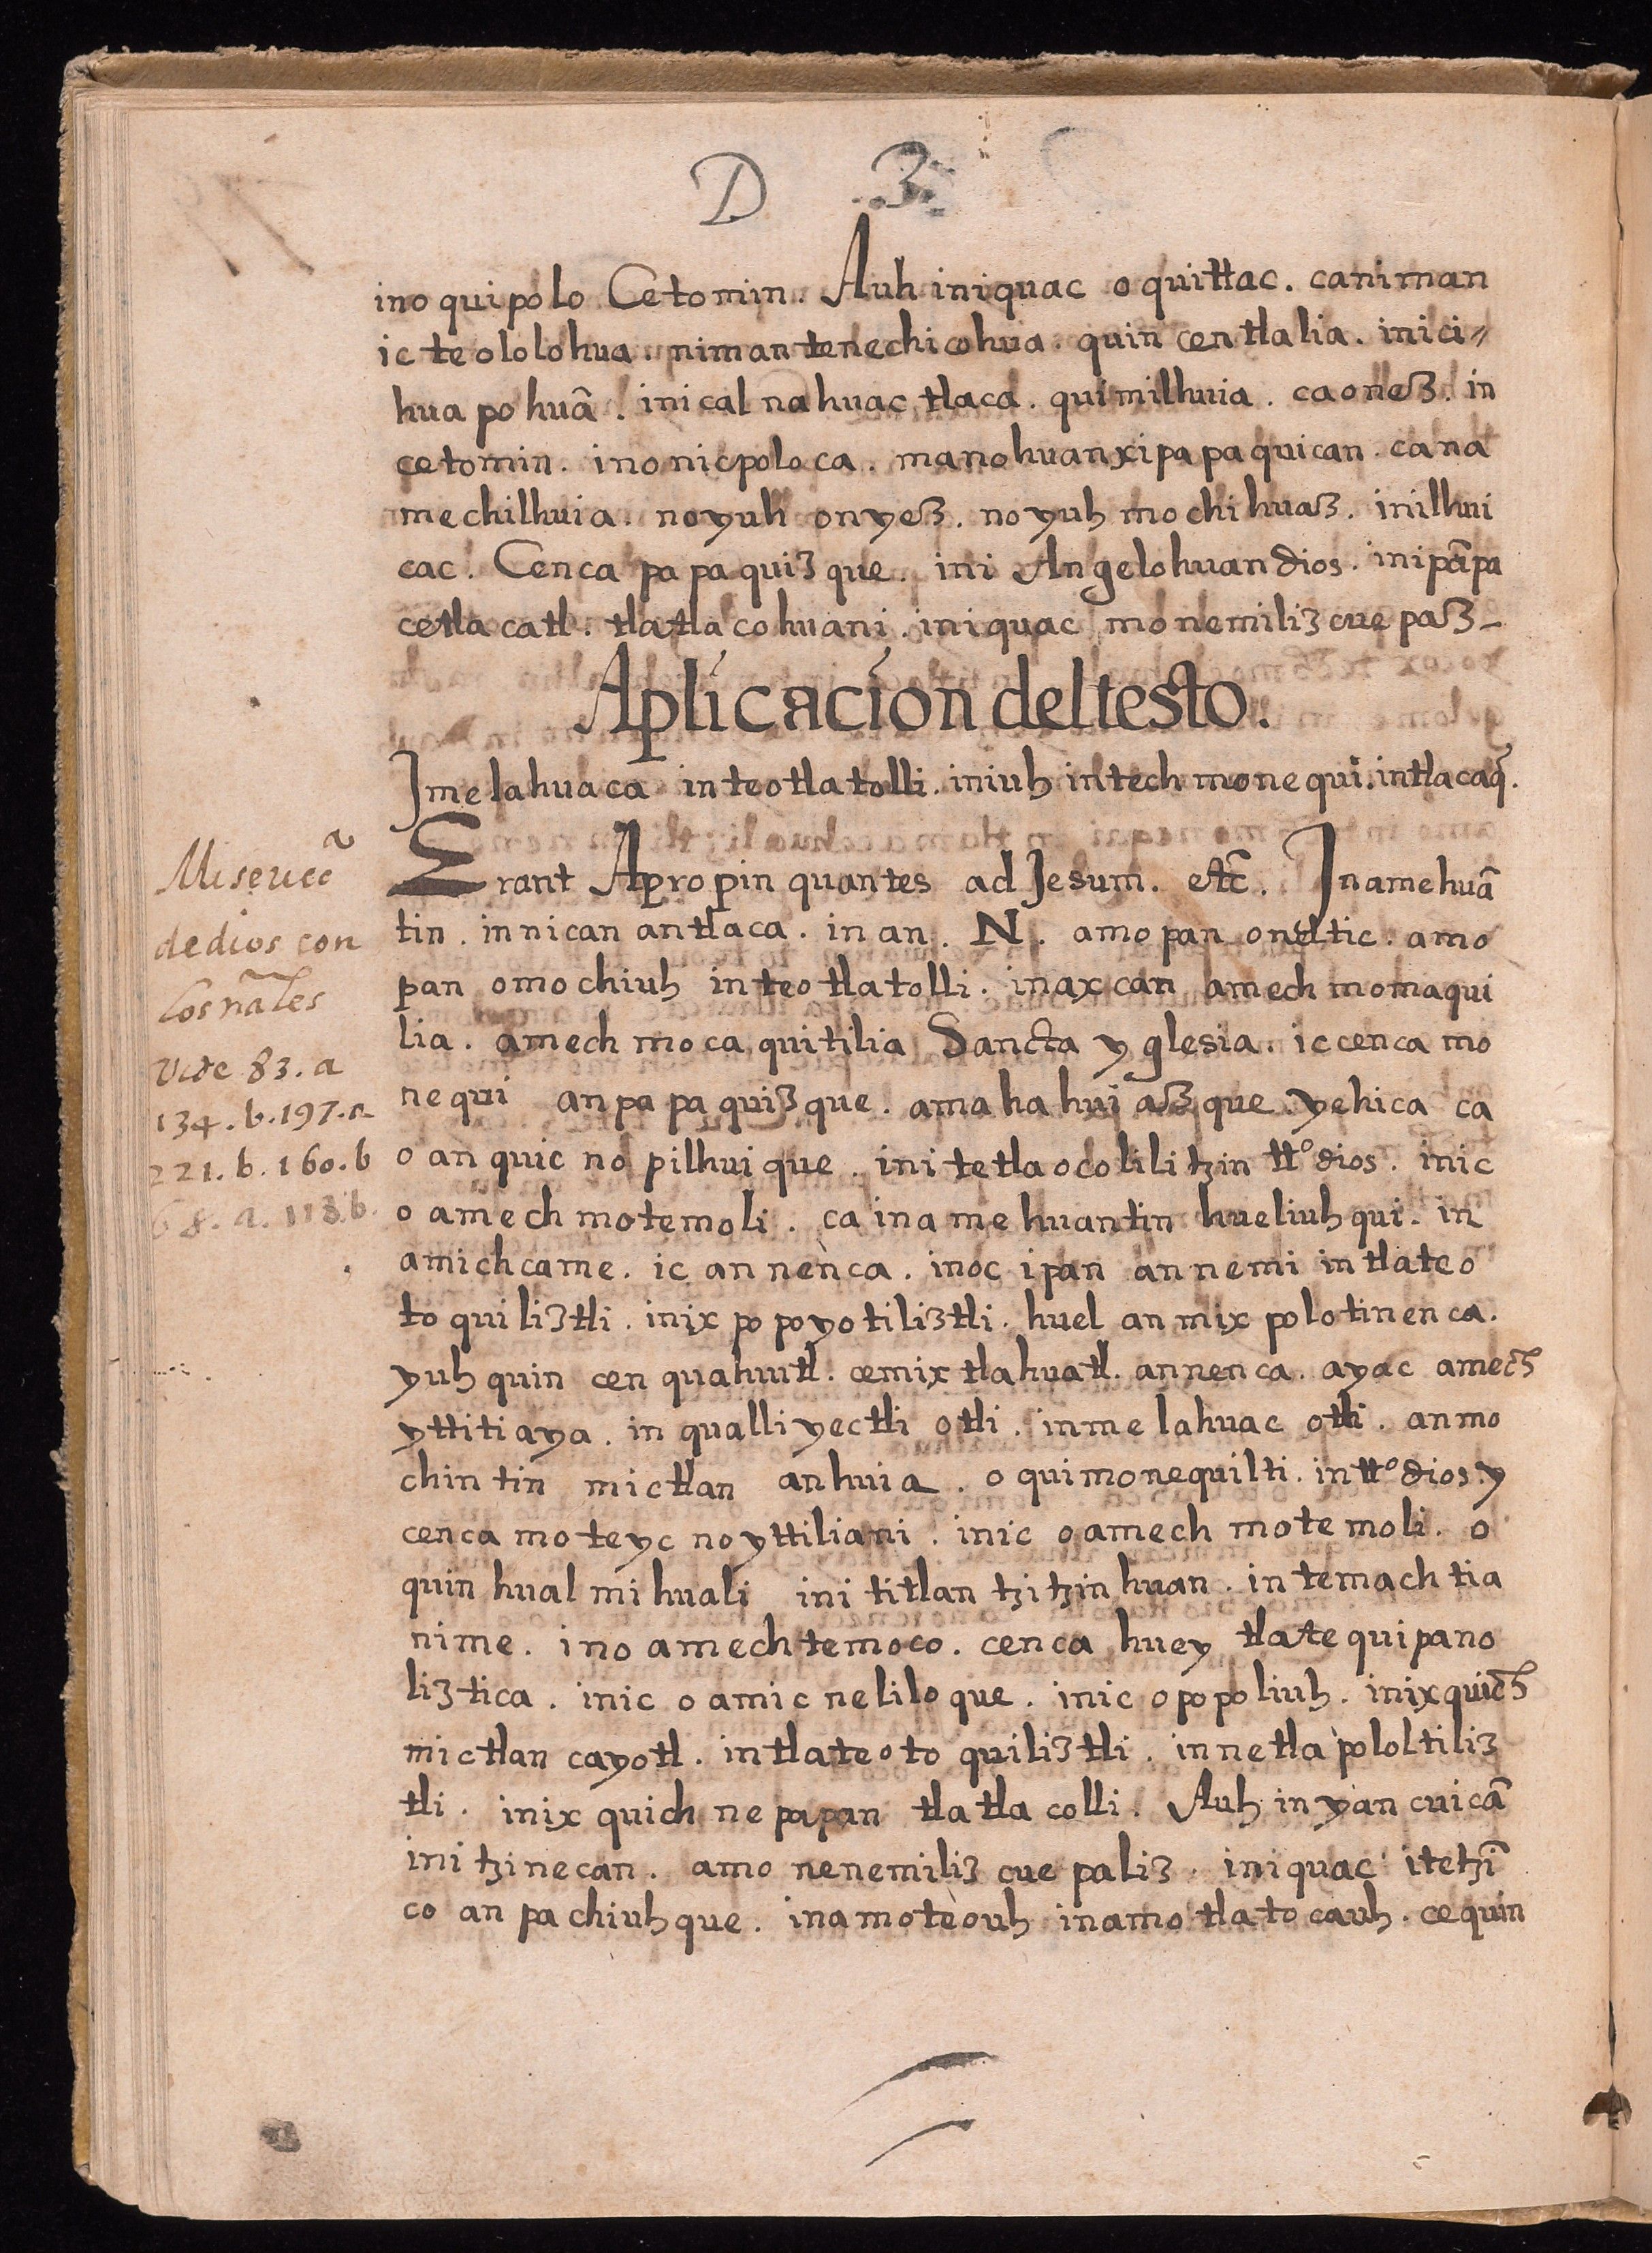 D 3
ino quipolo Cetomin. Auh iniquac oquittac. caniman
ic teololohua. nimantenechicohua. quin centlalia. inici=
hua pohuã. inical nahuac tlaca. quimilhuia. caonez. in
cetomin. inonicpoloca. manohuanxipapaquican. cana
mechilhuia. noyuh onyez. noyuh mochihuaz. inilhui
cac. Cenca papaquizque. ini Angelohuan dios. inipãpa
cetlacatl. tlatlacohuani. iniquac monemilizcuepaz_
Aplicacion deltesto.
Jmelahuaca inteotlatolli. iniuh intech monequi. intlacaq̃.
Erant Apropinquantes ad Jesum. etc̃. Jnamehuã
tin. innican antlaca. in an. N. amopan oneltic. amo
pan omochiuh inteotlatolli. inaxcan amech momaqui
lia. amech mocaquitilia Sancta yglesia. iccenca mo
nequi anpapaquizque. amahahuiazque. yehica ca
o anquicnopilhuique. initetlaocolilitzin tto dios. inic
o amechmotemoli. ca inamehuantin hueliuhqui. in
amichcame. ic annenca. inoc ipan annemi intlateo
toquiliztli. inixpopoyotiliztli. huel anmixpolotinenca.
yuhquin cen quahuutl. cemixtlahuatl. annenca. ayac amech
yttitiaya. in qualliyectli otli. inmelahuac otli. anmo
chintin mictlan anhuia. oquimonequilti. intto dios y
cenca moteycnoyttiliani. inic oamech motemoli. o
quin hualmihuali inititlantzitzinhuan. intemachtia
nime. ino amechtemoco. cenca huey tlatequipano
liztica. inic o amicneliloque. inic opopoliuh. inixquich
mictlancayotl. intlateotoquiliztli. innetlapololtiliz
tli. inixquich nepapan tlatlacolli. Auh inyancuicã
initzinecan. amo nenemilizcuepaliz. iniquac itetzĩ
co anpachiuhque. inamoteouh inamotlatocauh. cequin
Misericã
dedios con
los nãles
vide 83. a
134. b. 197. a
221. b. 160. b
68. a. 113. b.